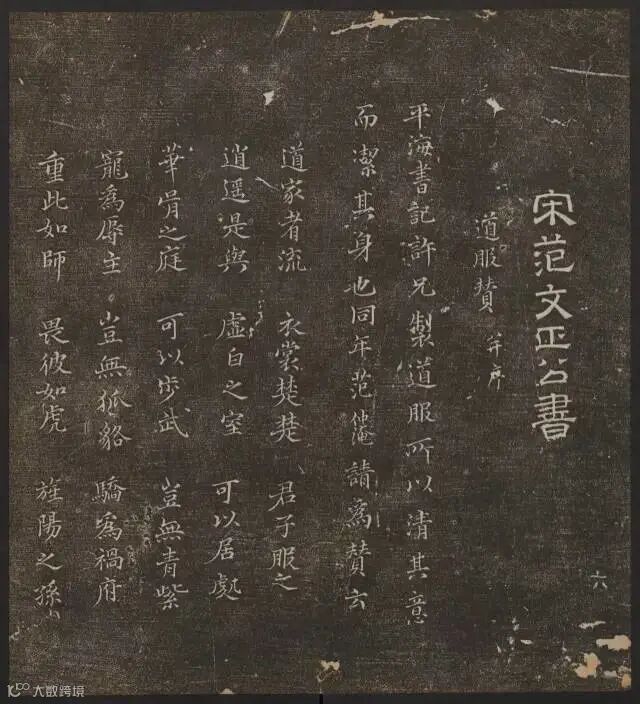 宋范文正公書
道服贊 并序
平海書記許兄製道服所以清其意
而潔其身也同年范仲淹請為贊云
道家者流 衣裳楚楚 君子服之
逍遥是與 虛白之室 可以居處
華胥之庭 可以步武 豈無青紫
寵為辱主 豈無狐貉 驕為禍府
重此如師 畏彼如虎 旌陽之孫
六
大數跨境